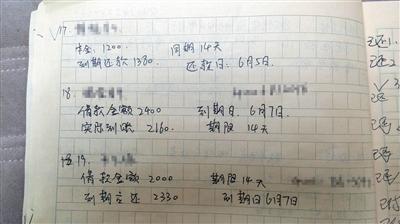 17.
本金:1200. 周期14天
到期还款1380. 还款日:6月5日.
18.
借款金额2400 到期日.6月7日.
实际到账2160. 期限14天
19.
借款金额2000 期限14天
到期应还2330 到期日6月7日
还1.
还2